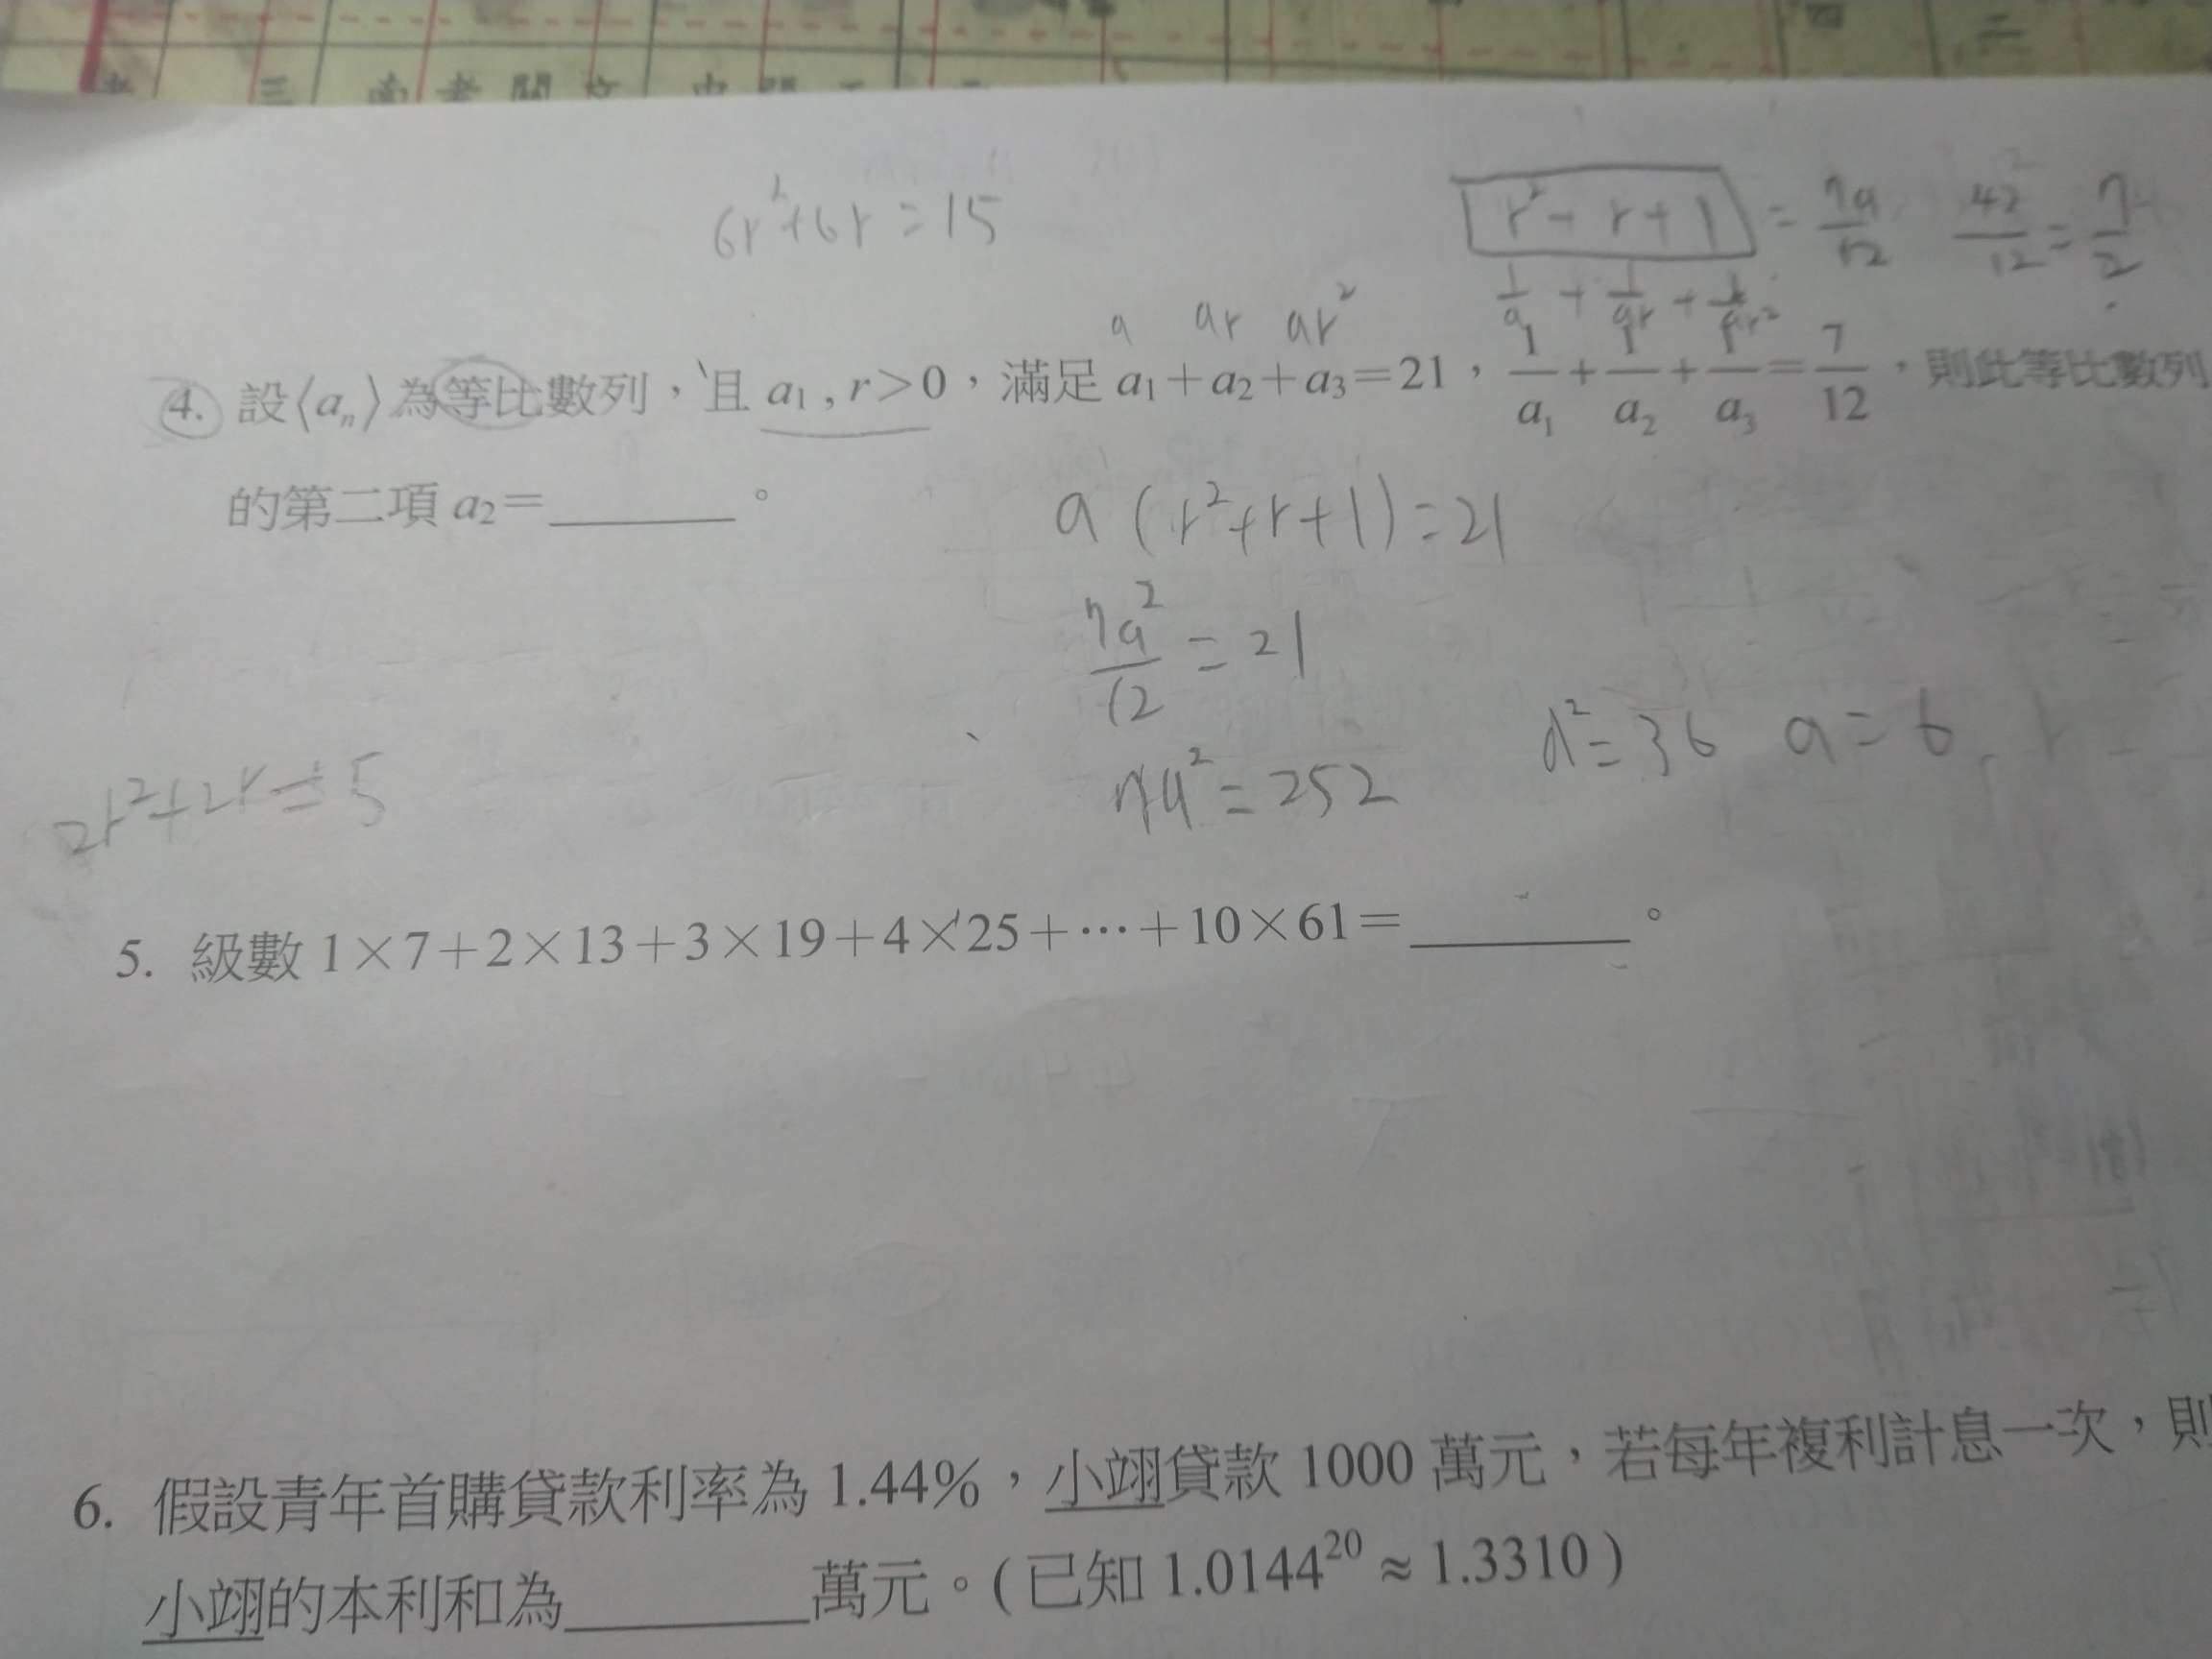 三
6r²+6r=15
r²+r+1 = 7a/12 42/12 = 7/2
1/a + 1/ar + 1/ar²
a ar ar²
4. 設⟨aₙ⟩為等比數列，且 a₁ , r＞0，滿足 a₁＋a₂＋a₃＝21，1/a₁＋1/a₂＋1/a₃＝7/12，則此等比數列
的第二項 a₂＝______。
a (r²+r+1)=21
7a²/12 = 21
a²=36 a=6
7a²=252
2r²+2r=5
5. 級數 1×7＋2×13＋3×19＋4×25＋⋯＋10×61＝______。
6. 假設青年首購貸款利率為 1.44%，小翊貸款 1000 萬元，若每年複利計息一次，則
小翊的本利和為______萬元。( 已知 1.0144²⁰ ≈ 1.3310 )